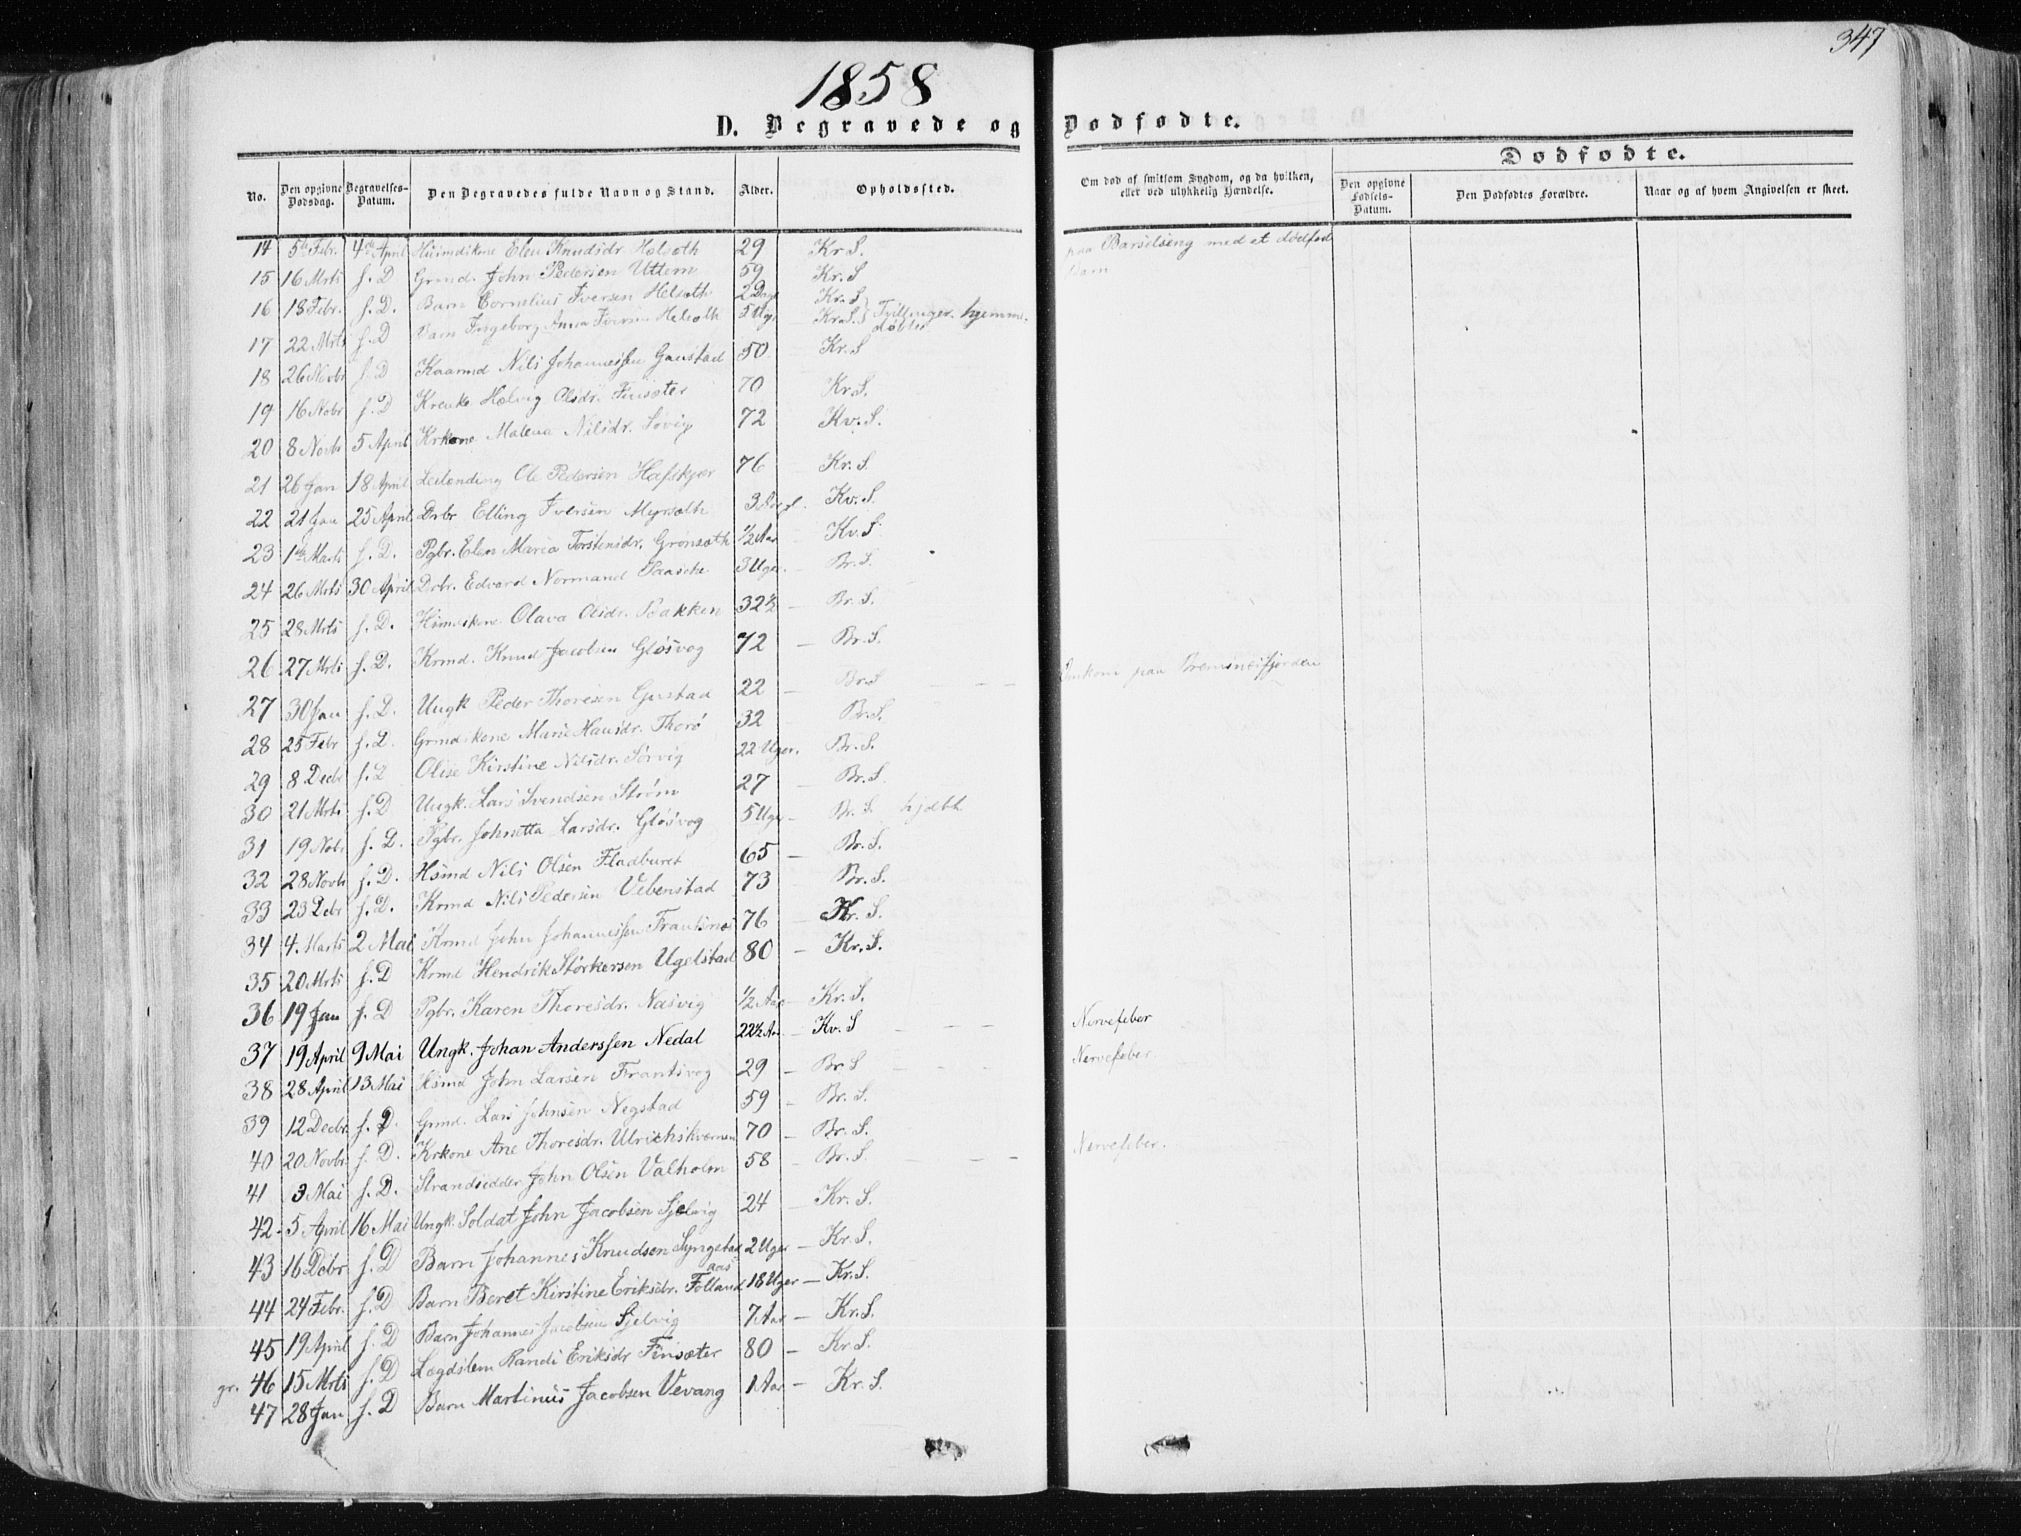 347
1858
D. Begravede og Dødfødte.
Dødfødte.
No. Den opgivne Dødsdag. Begravelses-Datum. Den Begravedes fulde Navn og Stand. Alder. Opholdssted. Om død af smitsom Sygdom, og da hvilken, eller ved ulykkelig Hændelse. Den opgivne Fødsels-Datum. Den Dødfødtes Forældre. Naar og af hvem Angivelsen er skeet.
14 5te Febr. 4de April Elen Knudsdr. Holsøth 29 Kr. S. paa Barselseng med et dødfød Barn
15 16 Mrts f. D Grmd. John Pedersen Uttem 59 Kr. S
16 18 Febr. f. D. Barn Cornelius Iversen Helsøth 2 Dage Kr. S
17 22 Mrts f. D Barn Ingeborg Anna Iversdr Helsøth 5 Ug. Kr. S. Tvillinger. hjemmedøbte
18 26 Novbr f. D Kaarmd Nils Johannessen Gaustad 50 Kr. S
19 16 Nobr f. D Krenke Hølvig Olsdr. Finsæter 70 Kr. S.
20 8 Novb 5 April Krkone Malena Nilsdr. Søvig 72 Kv. S.
21 26 Jan 18 April Leilending Ole Pedersen Hafskjær 76 Kr. S.
22 21 Jan 25 April Drbr Elling Iversen Myrsøth 3 Kv. S.
23 1ste Marts f. D. Pgbr. Elen Maria Torstensdr. Grønsøth 1/2 Aar Kv. S
24 26 Mrts 30 April Drbr. Edvard Normand Paasche 3 Uger. Br. S.
25 28 Mrts f. D. Hsmdskone Olava Olsdr. Bakken 32½ Br. S.
26 27 Mrts f. D. Krmd. Knud Jacobsen Gløsvog 72 Br. S.
27 30 Jan f. D. Ungk Peder Thoresen Gustad 22 Br. S Omkom paa Bremsnesfjorden
28 25 Febr f. D. Grmdskone Marie Hansdr. Thorø 32 Br. S.
29 8 Decb f. D Olise Kirstine Nilsdr. Sørvig 22 Uger. Br. S.
30 21 Mrts f. D Ungk. Lars Svendsen Strøm 27 Br. S.
31 19 Nobr f. D. Pgbr. Johnetta Larsdr. Gløsvog 5 Uger Br. S. hjdbt
32 28 Novb f. D. Hsmd Nils Olsen Fladburet 65 Br. S.
33 23 Debr f. D. Krmd Nils Pedersen Vebenstad 73 Br. S.
34 4. Marts 2 Mai Krmd John Johannessen Frantsnæs 76 Kr. S.
35 20 Mrts f. D Krmd Hendrik Størkersen Ugelstad 80 Kr. S.
36 19 Jan f. D Pgbr. Karen Thoresdr. Næsvig 1/2 Aar Kr. S.
37 19 April 9 Mai Ungk. Johan Anderssen Nedal 22½ Aar Kv. S Nervefeber
38 28 April 13 Mai Hsmd John Larsen Frantsvog 29 Br. S Nervefeber.
39 12 Decbr f. D. Grmd. Lars Johnsen Negstad 59 Br. S.
40 20 Novbr f. D. Krkone Ane Thoresdr. Ulrichskværnen 70 Br. S.
41 3 Mai f. D. Strandsidder John Olsen Valholm 58 Br. S. Nervefeber.
42 5 April 16 Mai Ungk. Soldat John Jacobsen Sjølvig 24 Kr. S.
43 16 Debr f. D Barn Johannes Knudsen Lyngstad 2 Uger Kr. S.
44 24 Febr. f. D Barn Beret Kirstine Eriksdr. Follandaas 18 Uger Kr. S.
45 19 April f. D Barn Johannes Jacobsen Sjølvig 7 Aar Kr. S.
gr. 46 15 Mrts f. D Lægdslem Randi Eriksdr Finsæter 80 Kr S.
47 28 Jan f. D Barn Martinus Jacobsen Vevang 1 Aar Kr. S.